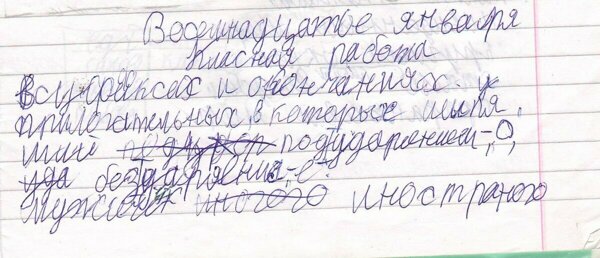 Восемнадцатое января
Класная работа
В суффиксах и окончаниях
прилогательных в которых шипя
щий под ударением-,О,
без ударения-,е.
Мужской иностраного